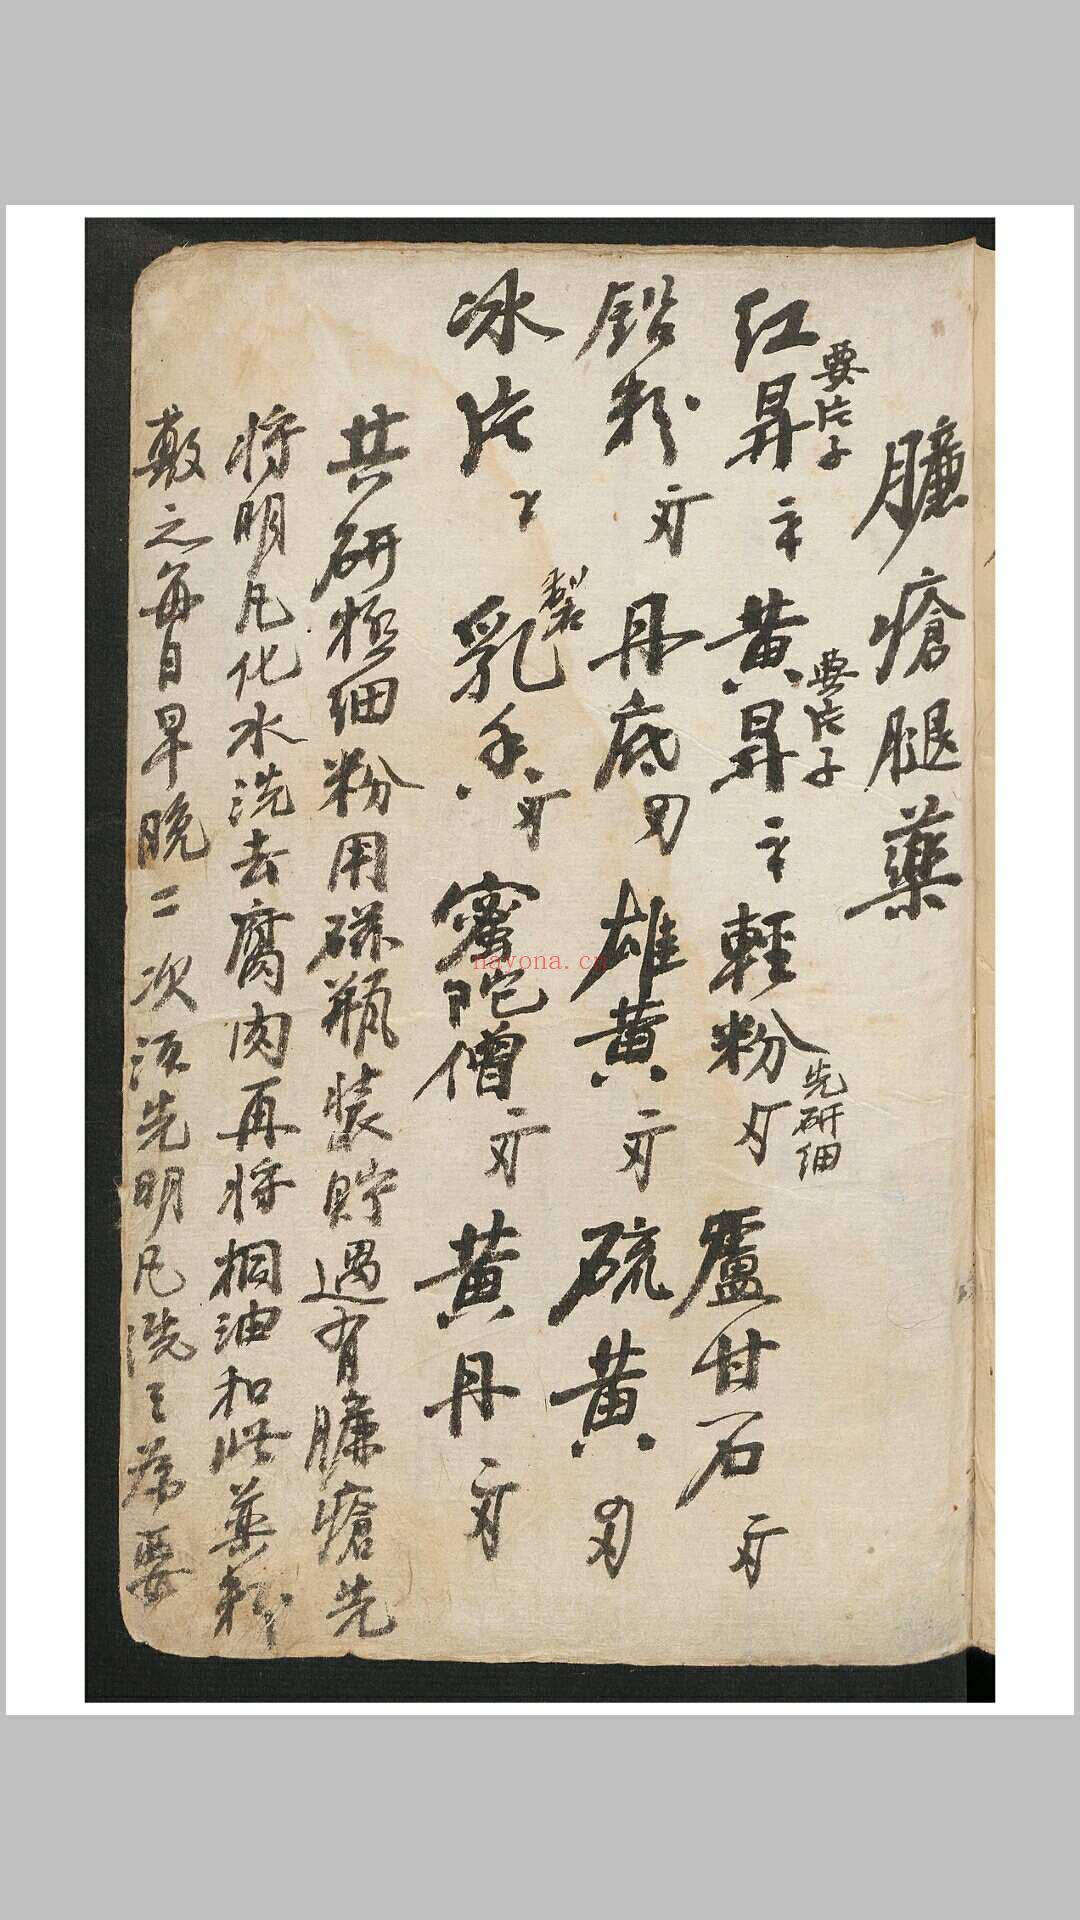 臁瘡腿藥
紅昇 要片子 黃昇 要片子 輕粉 先研細 爐甘石
鉛粉 丹底 雄黃 硫黃
冰片 製乳香 蜜陀僧 黃丹
共研極細粉用磁瓶裝貯遇有臁瘡先
將明凡化水洗去腐肉再將桐油和此藥粉
敷之每日早晚二次須先明凡洗之為要
nayona.cn